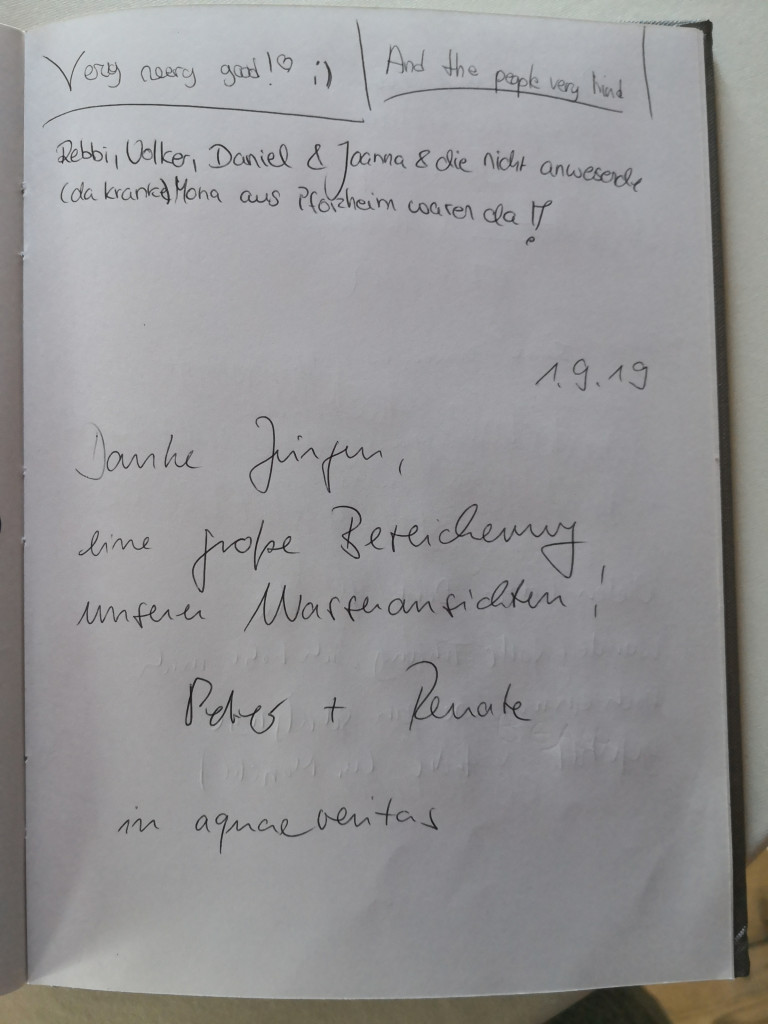 Very veery good!♡ ;)
And the people very kind
Rebbi, Volker, Daniel & Joanna & die nicht anwesende
(da kranke) Mona aus Pforzheim waren da !!
1.9.19
Danke Jürgen,
eine große Bereicherung
unserer Wasseransichten!
Peter + Renate
in aquae veritas